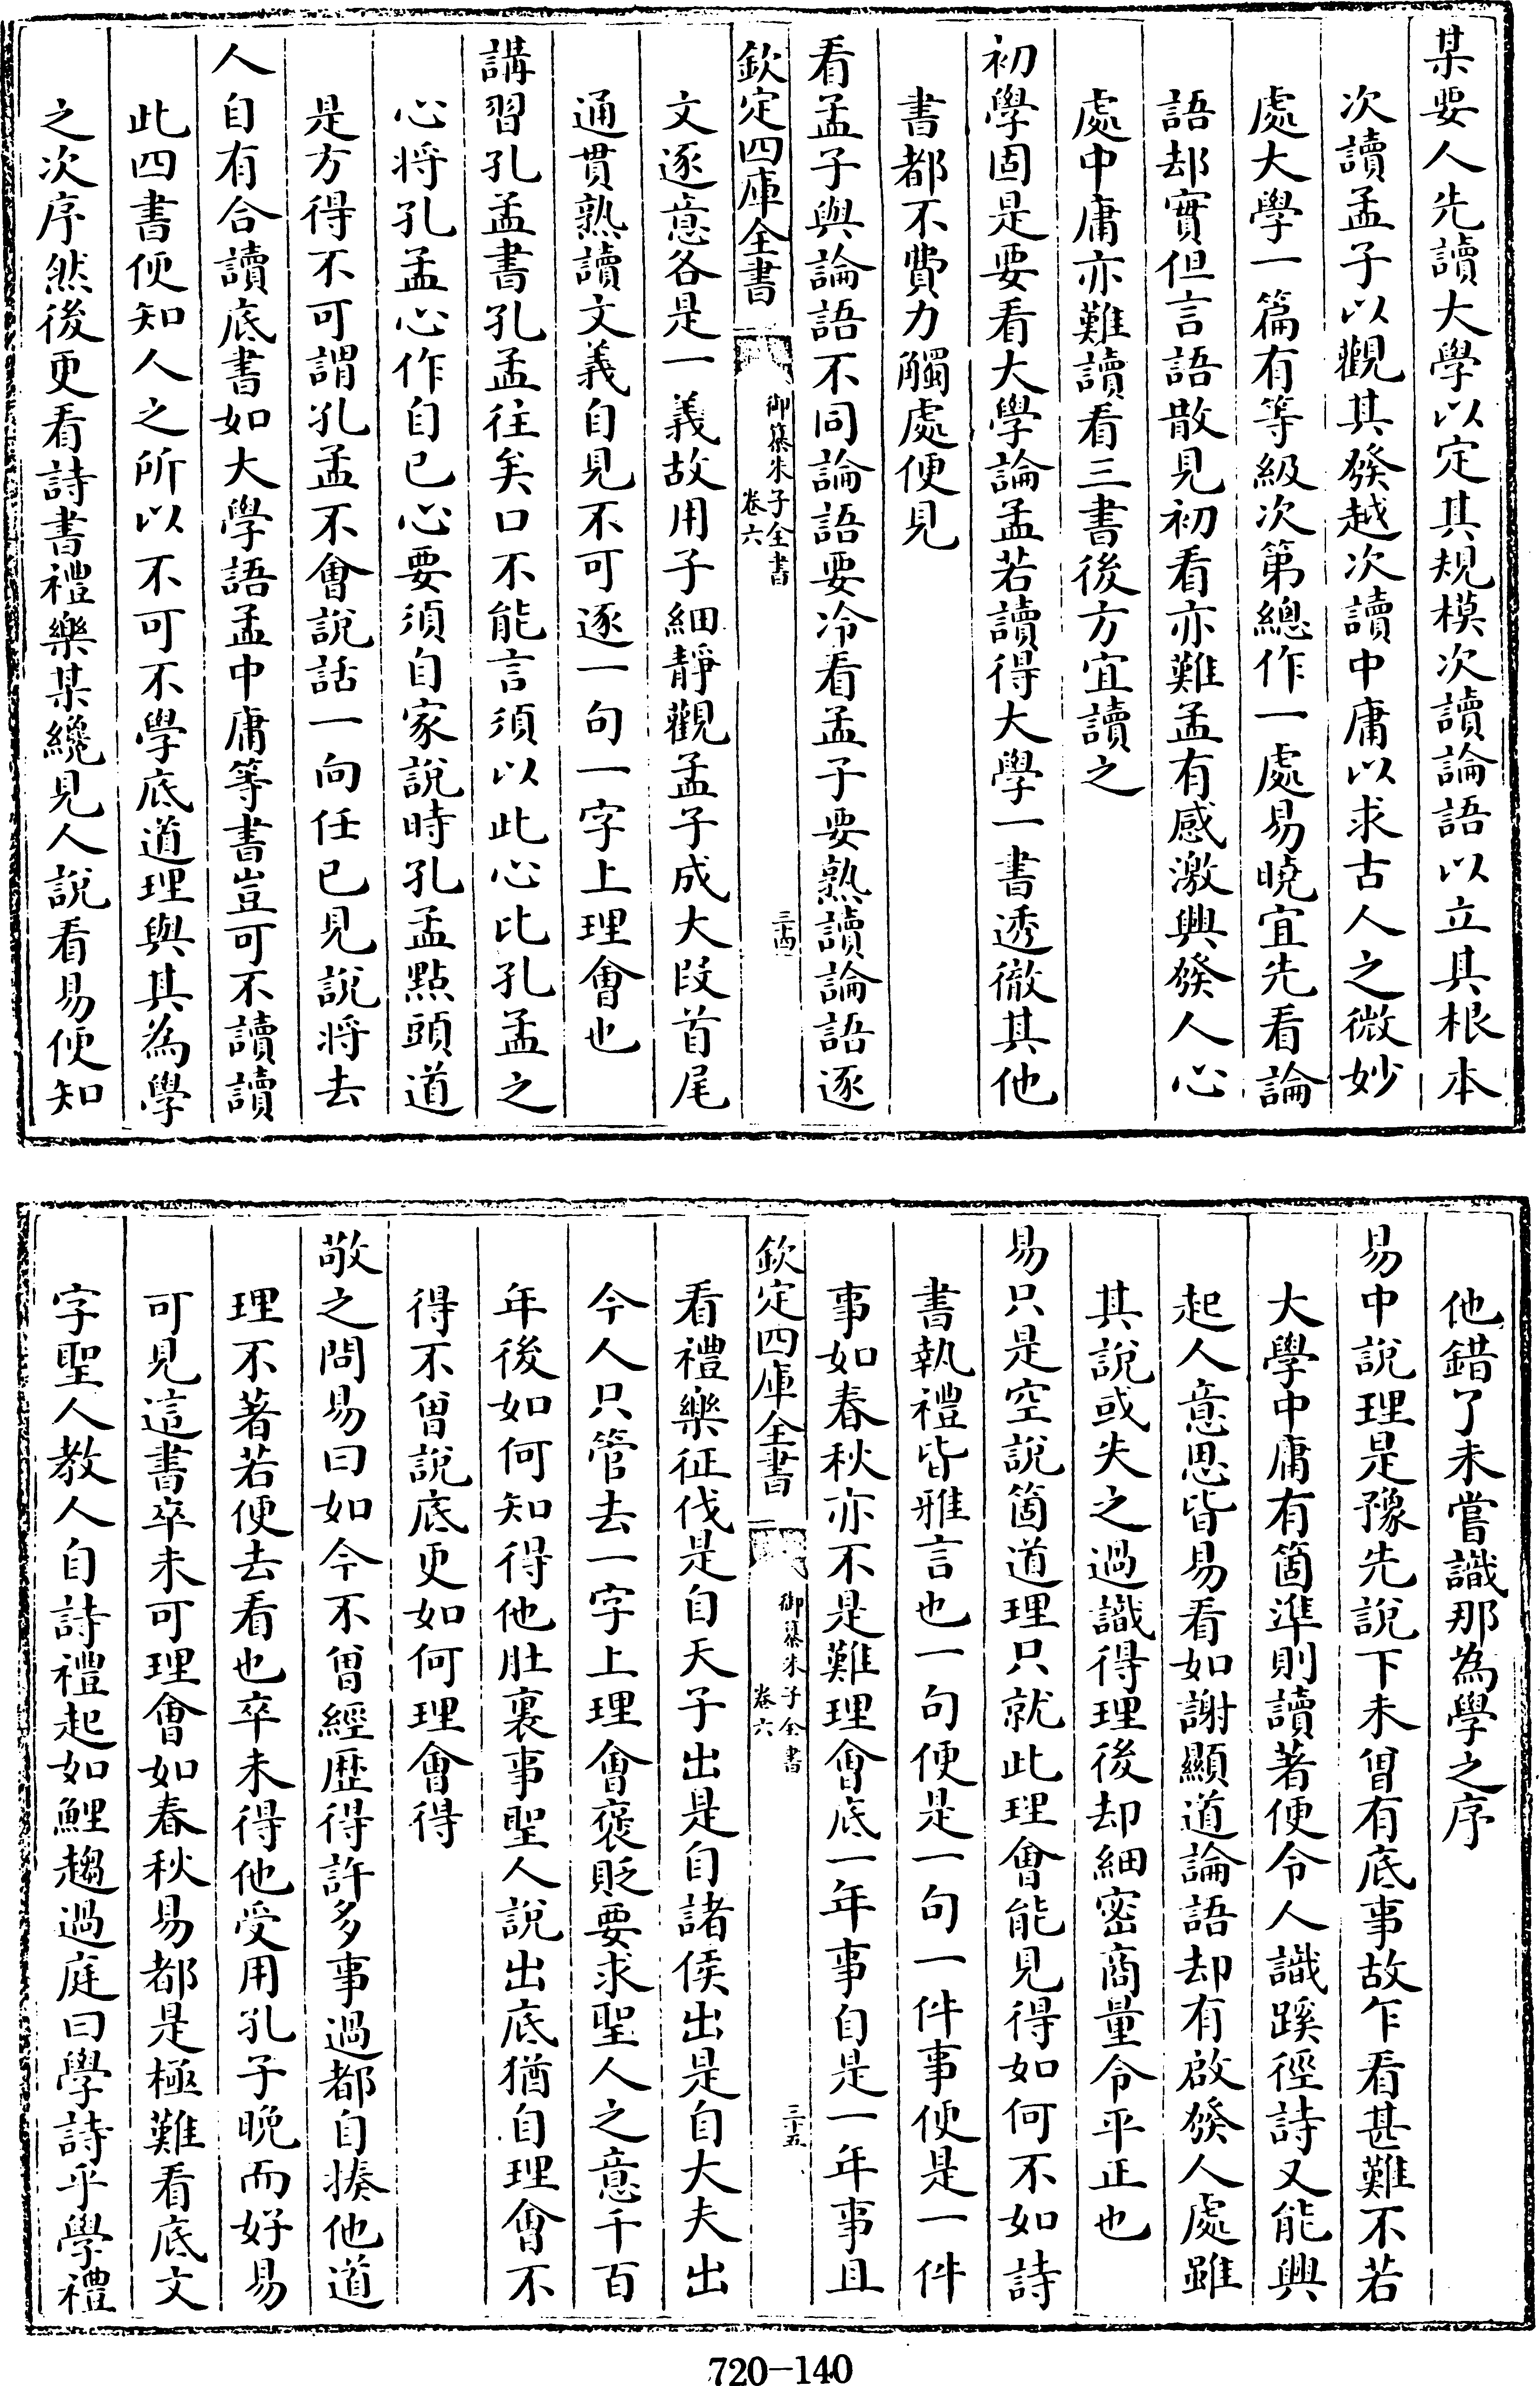 某要人先讀大學以定其規模次讀論語以立其根本
次讀孟子以觀其發越次讀中庸以求古人之微妙
處大學一篇有等級次第總作一處易曉宜先看論
語却實但言語散見初看亦難孟有感激興發人心
處中庸亦難讀看三書後方宜讀之
初學固是要看大學論孟若讀得大學一書透徹其他
書都不費力觸處便見
看孟子與論語不同論語要冷看孟子要熟讀論語逐
欽定四庫全書
御纂朱子全書
卷六
三十四
文逐意各是一義故用子細靜觀孟子成大段首尾
通貫熟讀文義自見不可逐一句一字上理會也
講習孔孟書孔孟往矣口不能言須以此心比孔孟之
心將孔孟心作自己心要須自家說時孔孟點頭道
是方得不可謂孔孟不會說話一向任己見說將去
人自有合讀底書如大學語孟中庸等書豈可不讀讀
此四書便知人之所以不可不學底道理與其為學
之次序然後更看詩書禮樂某纔見人說看易便知
他錯了未嘗識那為學之序
易中說理是豫先說下未曾有底事故乍看甚難不若
大學中庸有箇準則讀著便令人識蹊徑詩又能興
起人意思皆易看如謝顯道論語却有啟發人處雖
其說或失之過識得理後却細密商量令平正也
易只是空說箇道理只就此理會能見得如何不如詩
書執禮皆雅言也一句便是一句一件事便是一件
事如春秋亦不是難理會底一年事自是一年事且
欽定四庫全書
御纂朱子全書
卷六
三十五
看禮樂征伐是自天子出是自諸侯出是自大夫出
今人只管去一字上理會褒貶要求聖人之意千百
年後如何知得他肚裏事聖人說出底猶自理會不
得不曾說底更如何理會得
敬之問易曰如今不曾經歷得許多事過都自揍他道
理不著若便去看也卒未得他受用孔子晚而好易
可見這書卒未可理會如春秋易都是極難看底文
字聖人教人自詩禮起如鯉趨過庭曰學詩乎學禮
720-140